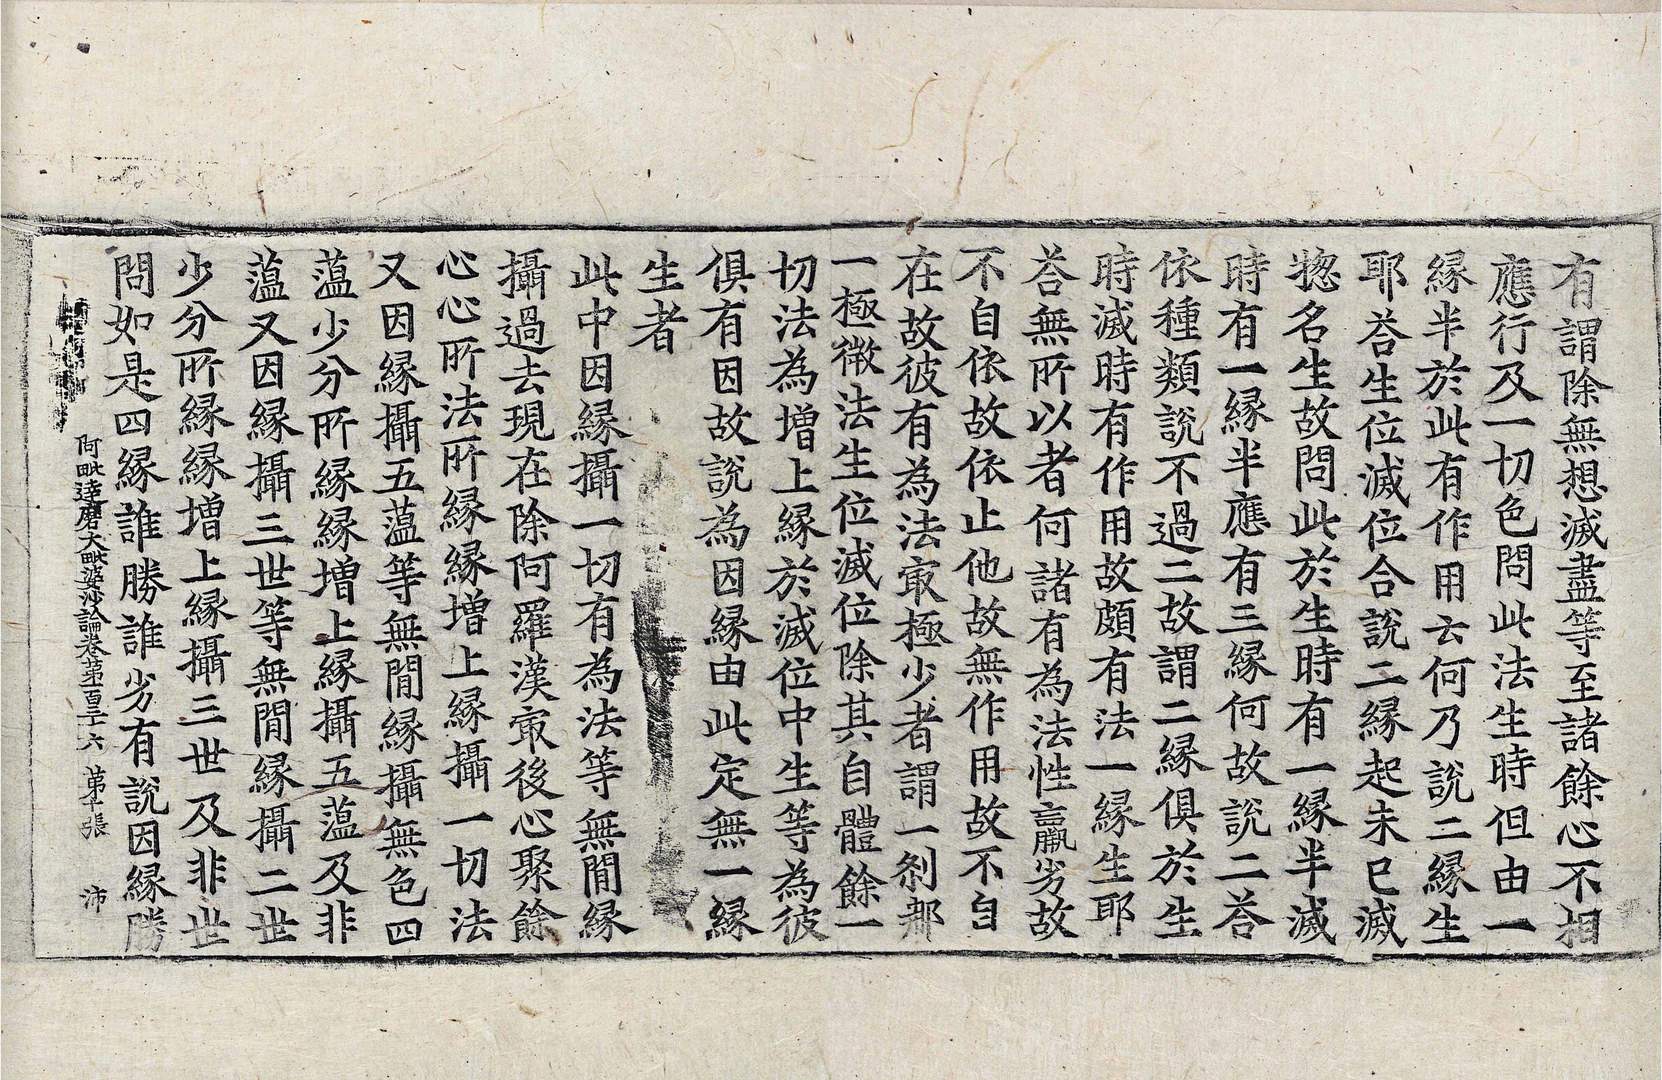 有謂除無想滅盡等至諸餘心不相
應行及一切色問此法生時但由一
緣半於此有作用云何乃說二緣生
耶荅生位滅位合說二緣起未已滅
揔名生故問此於生時有一緣半滅
時有一緣半應有三緣何故說二荅
依種類說不過二故謂二緣俱於生
時滅時有作用故頗有法一緣生耶
荅無所以者何諸有為法性羸劣故
不自依故依止他故無作用故不自
在故彼有為法㝡極少者謂一刹那
一極微法生位滅位除其自體餘一
切法為增上緣於滅位中生等為彼
俱有因故說為因緣由此定無一緣
生者
此中因緣攝一切有為法等無間緣
攝過去現在除阿羅漢㝡後心聚餘
心心所法所緣緣增上緣攝一切法
又因緣攝五蘊等無間緣攝無色四
蘊少分所緣緣增上緣攝五蘊及非
蘊又因緣攝三世等無間緣攝二世
少分所緣緣增上緣攝三世及非世
問如是四緣誰勝誰劣有說因緣勝
阿毗達磨大毗婆沙論卷第百三十六 第十張 沛